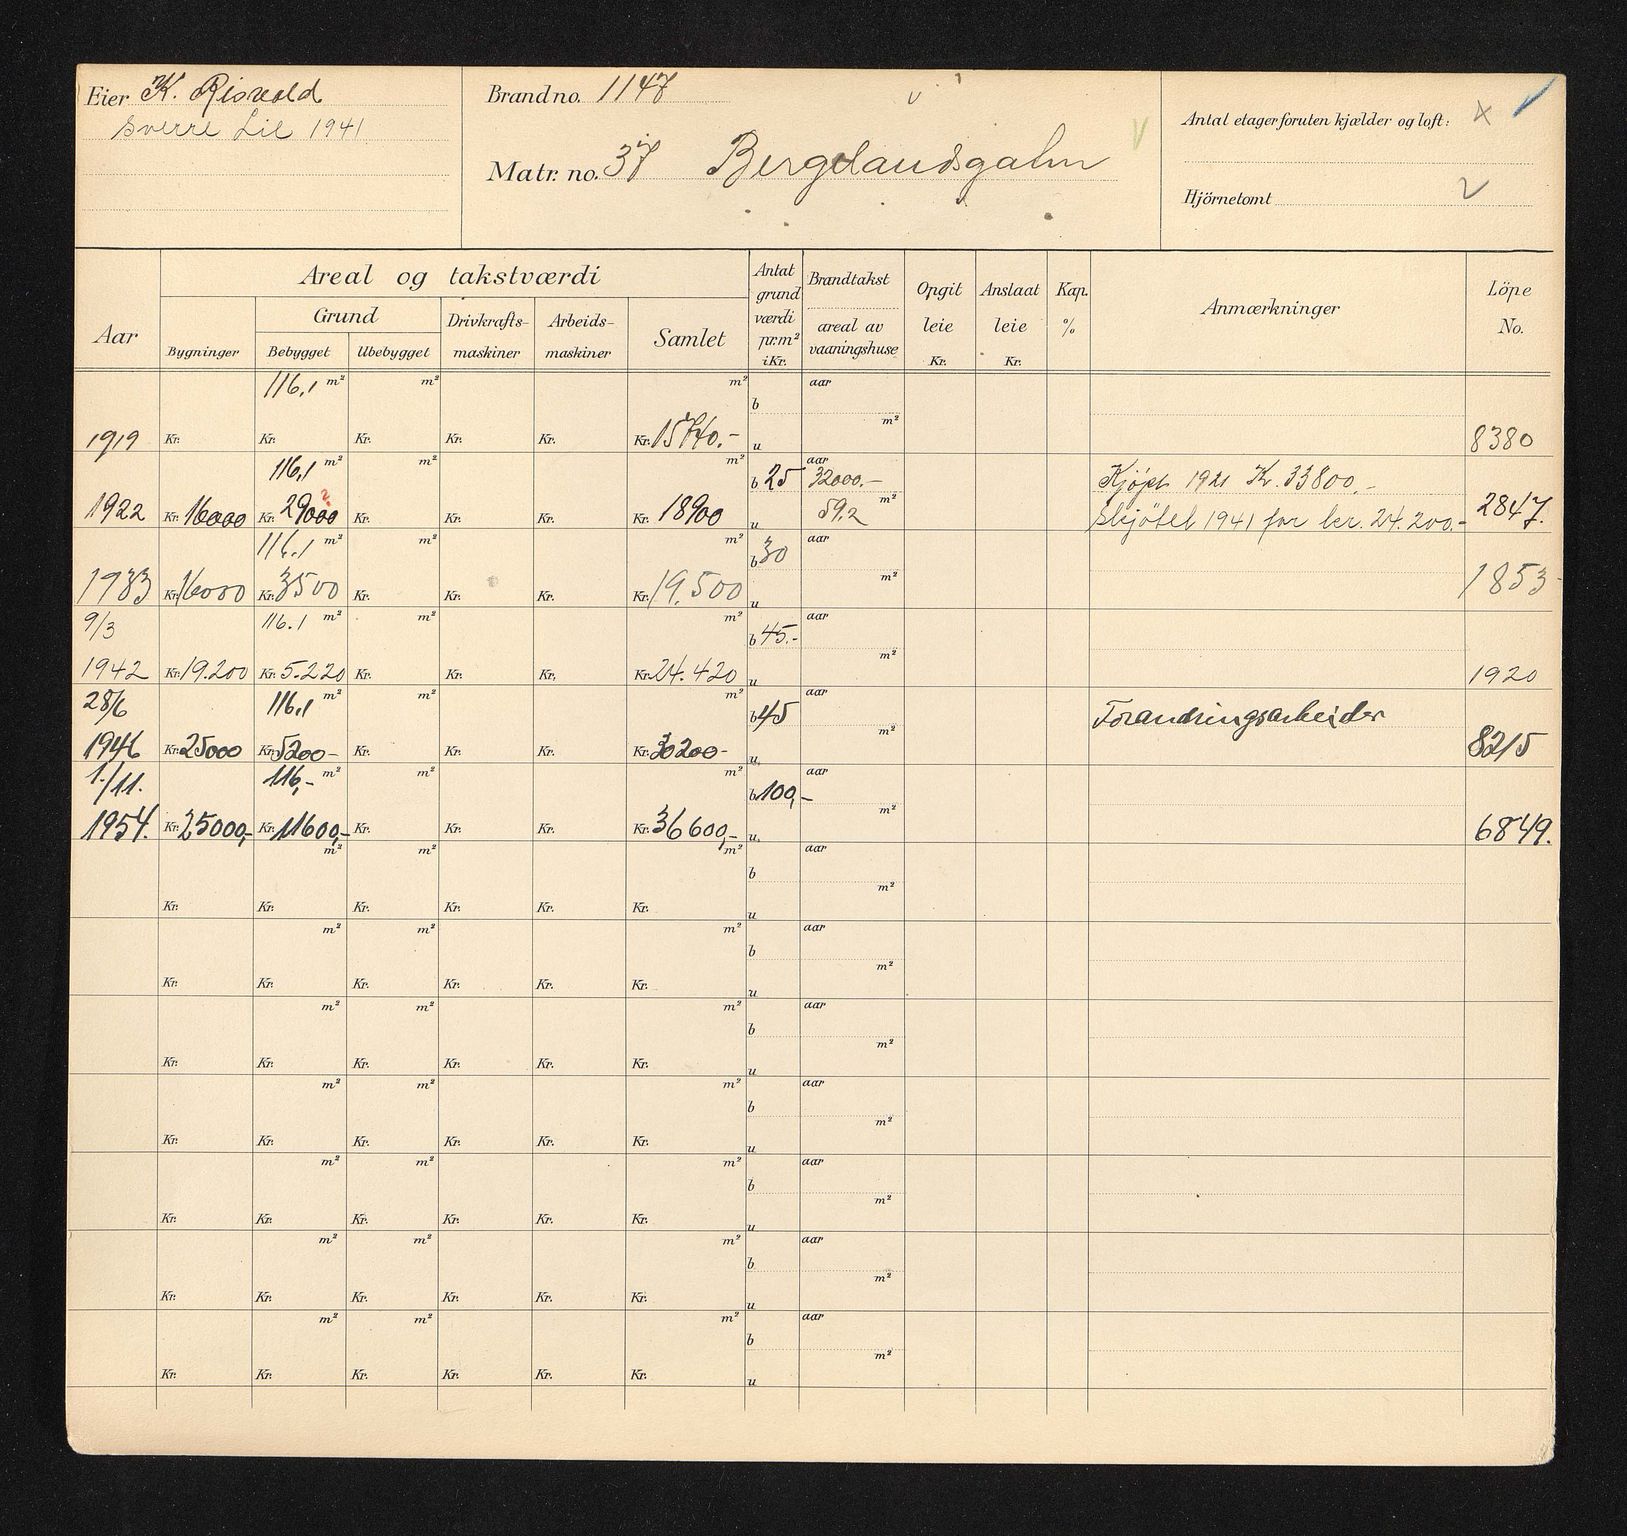 Eier K. Risvold
Sverre Lie 1941
Brand no. 1147
Matr. no. 37 Bergelandsgaten
Antal etager foruten kjælder og loft:
Hjörnetomt
Areal og takstværdi
Aar
Bygninger
Grund
Bebygget
Ubebygget
Drivkrafts-
maskiner
Arbeids-
maskiner
Samlet
Antat
grund
værdi
pr.m²
i Kr.
Brandtakst
areal av
vaaningshuse
Opgit
leie
Kr.
Anslaat
leie
Kr.
Kap.
%
Anmærkninger
Löpe
No.
116,1 m² m² m² b aar
1919 Kr. Kr. Kr. Kr. Kr. Kr. 15740.- u m² 8380
116,1 m² m² m² b 25 aar 32000.- Kjøpt 1921 Kr. 33800.-
1922 Kr. 16000 Kr. 2900 Kr. Kr. Kr. Kr. 18900 u 59.2 m² Skjøtet 1941 for kr. 24.200.- 2847.
116.1 m² m² m² b 30 aar
1933 Kr. 16000 Kr. 3500 Kr. Kr. Kr. Kr. 19.500 u m² 1853
9/3 116.1 m² m² m² b 45.- aar
1942 Kr. 19.200 Kr. 5.220 Kr. Kr. Kr. Kr. 24.420 u m² 1920
28/6 116,1 m² m² m² b 45 aar Forandringsarbeider
1946 Kr. 25000 Kr. 5200- Kr. Kr. Kr. Kr. 30200- u m² 8215
1./11. 116,- m² m² m² b 100,- aar
1954. Kr. 25000,- Kr. 11600,- Kr. Kr. Kr. Kr. 36600,- u m² 6849.
m² m² m² b aar
Kr. Kr. Kr. Kr. Kr. Kr. u m²
m² m² m² b aar
Kr. Kr. Kr. Kr. Kr. Kr. u m²
m² m² m² b aar
Kr. Kr. Kr. Kr. Kr. Kr. u m²
m² m² m² b aar
Kr. Kr. Kr. Kr. Kr. Kr. u m²
m² m² m² b aar
Kr. Kr. Kr. Kr. Kr. Kr. u m²
m² m² m² b aar
Kr. Kr. Kr. Kr. Kr. Kr. u m²
m² m² m² b aar
Kr. Kr. Kr. Kr. Kr. Kr. u m²